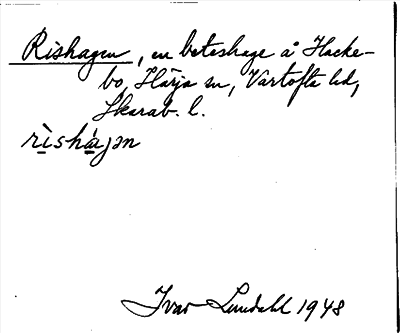 Rishagen, en beteshage å Hacke-
bo, Härja sn, Vartofta hd,
Skarab. l.
rìshájən
Ivar Lundahl 1948